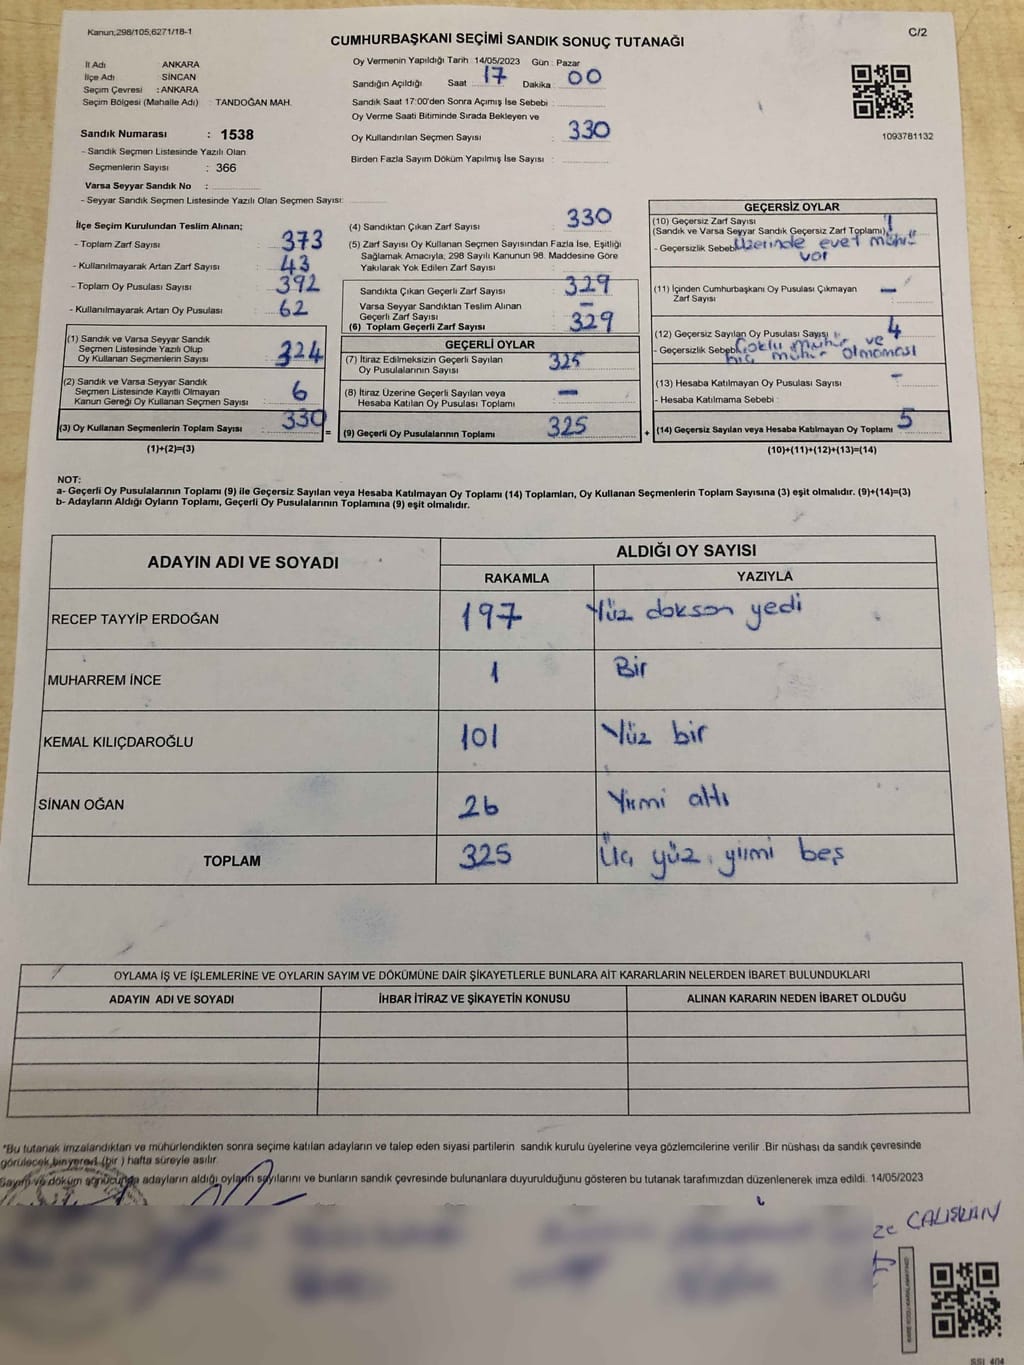 Kanun;298/105;6271/18-1
C/2
CUMHURBAŞKANI SEÇİMİ SANDIK SONUÇ TUTANAĞI
İl Adı ANKARA
İlçe Adı SİNCAN
Seçim Çevresi : ANKARA
Seçim Bölgesi (Mahalle Adı) : TANDOĞAN MAH.
Oy Vermenin Yapıldığı Tarih :14/05/2023 Gün : Pazar
Sandığın Açıldığı Saat : 17 Dakika : 00
Sandık Saat 17:00'den Sonra Açımış İse Sebebi :
Oy Verme Saati Bitiminde Sırada Bekleyen ve
Oy Kullandırılan Seçmen Sayısı : 330
Birden Fazla Sayım Döküm Yapılmış İse Sayısı :
1093781132
Sandık Numarası : 1538
- Sandık Seçmen Listesinde Yazılı Olan
Seçmenlerin Sayısı : 366
Varsa Seyyar Sandık No :
- Seyyar Sandık Seçmen Listesinde Yazılı Olan Seçmen Sayısı:
İlçe Seçim Kurulundan Teslim Alınan;
- Toplam Zarf Sayısı : 373
- Kullanılmayarak Artan Zarf Sayısı : 43
- Toplam Oy Pusulası Sayısı : 392
- Kullanılmayarak Artan Oy Pusulası : 62
(1) Sandık ve Varsa Seyyar Sandık
Seçmen Listesinde Yazılı Olup
Oy Kullanan Seçmenlerin Sayısı : 324
(2) Sandık ve Varsa Seyyar Sandık
Seçmen Listesinde Kayıtlı Olmayan
Kanun Gereği Oy Kullanan Seçmen Sayısı : 6
(3) Oy Kullanan Seçmenlerin Toplam Sayısı : 330
(1)+(2)=(3)
(4) Sandıktan Çıkan Zarf Sayısı : 330
(5) Zarf Sayısı Oy Kullanan Seçmen Sayısından Fazla İse, Eşitliği
Sağlamak Amacıyla, 298 Sayılı Kanunun 98. Maddesine Göre
Yakılarak Yok Edilen Zarf Sayısı :
Sandıkta Çıkan Geçerli Zarf Sayısı : 329
Varsa Seyyar Sandıktan Teslim Alınan
Geçerli Zarf Sayısı : –
(6) Toplam Geçerli Zarf Sayısı : 329
GEÇERLİ OYLAR
(7) İtiraz Edilmeksizin Geçerli Sayılan
Oy Pusulalarının Sayısı : 325
(8) İtiraz Üzerine Geçerli Sayılan veya
Hesaba Katılan Oy Pusulası Toplamı : –
= (9) Geçerli Oy Pusulalarının Toplamı : 325
GEÇERSİZ OYLAR
(10) Geçersiz Zarf Sayısı : 1
(Sandık ve Varsa Seyyar Sandık Geçersiz Zarf Toplamı)
- Geçersizlik Sebebi: Üzerinde evet mührü
var
(11) İçinden Cumhurbaşkanı Oy Pusulası Çıkmayan
Zarf Sayısı : –
(12) Geçersiz Sayılan Oy Pusulası Sayısı : 4
- Geçersizlik Sebebi: Çoklu mühür ve
hiç mühür olmaması
(13) Hesaba Katılmayan Oy Pusulası Sayısı : –
- Hesaba Katılmama Sebebi :
+ (14) Geçersiz Sayılan veya Hesaba Katılmayan Oy Toplamı : 5
(10)+(11)+(12)+(13)=(14)
NOT:
a- Geçerli Oy Pusulalarının Toplamı (9) ile Geçersiz Sayılan veya Hesaba Katılmayan Oy Toplamı (14) Toplamları, Oy Kullanan Seçmenlerin Toplam Sayısına (3) eşit olmalıdır. (9)+(14)=(3)
b- Adayların Aldığı Oyların Toplamı, Geçerli Oy Pusulalarının Toplamına (9) eşit olmalıdır.
ADAYIN ADI VE SOYADI ALDIĞI OY SAYISI
RAKAMLA YAZIYLA
RECEP TAYYİP ERDOĞAN 197 Yüz doksan yedi
MUHARREM İNCE 1 Bir
KEMAL KILIÇDAROĞLU 101 Yüz bir
SİNAN OĞAN 26 Yirmi altı
TOPLAM 325 Üç yüz yirmi beş
OYLAMA İŞ VE İŞLEMLERİNE VE OYLARIN SAYIM VE DÖKÜMÜNE DAİR ŞİKAYETLERLE BUNLARA AİT KARARLARIN NELERDEN İBARET BULUNDUKLARI
ADAYIN ADI VE SOYADI İHBAR İTİRAZ VE ŞİKAYETİN KONUSU ALINAN KARARIN NEDEN İBARET OLDUĞU
*Bu tutanak imzalandıktan ve mühürlendikten sonra seçime katılan adayların ve talep eden siyasi partilerin sandık kurulu üyelerine veya gözlemcilerine verilir. Bir nüshası da sandık çevresinde
görülecek bir yere 1 (bir ) hafta süreyle asılır.
Sayım ve döküm sonucunda adayların aldığı oyların sayılarını ve bunların sandık çevresinde bulunanlara duyurulduğunu gösteren bu tutanak tarafımızdan düzenlenerek imza edildi. 14/05/2023
ze ÇALIŞKAN
KARE KODU KARALAMAYINIZ!